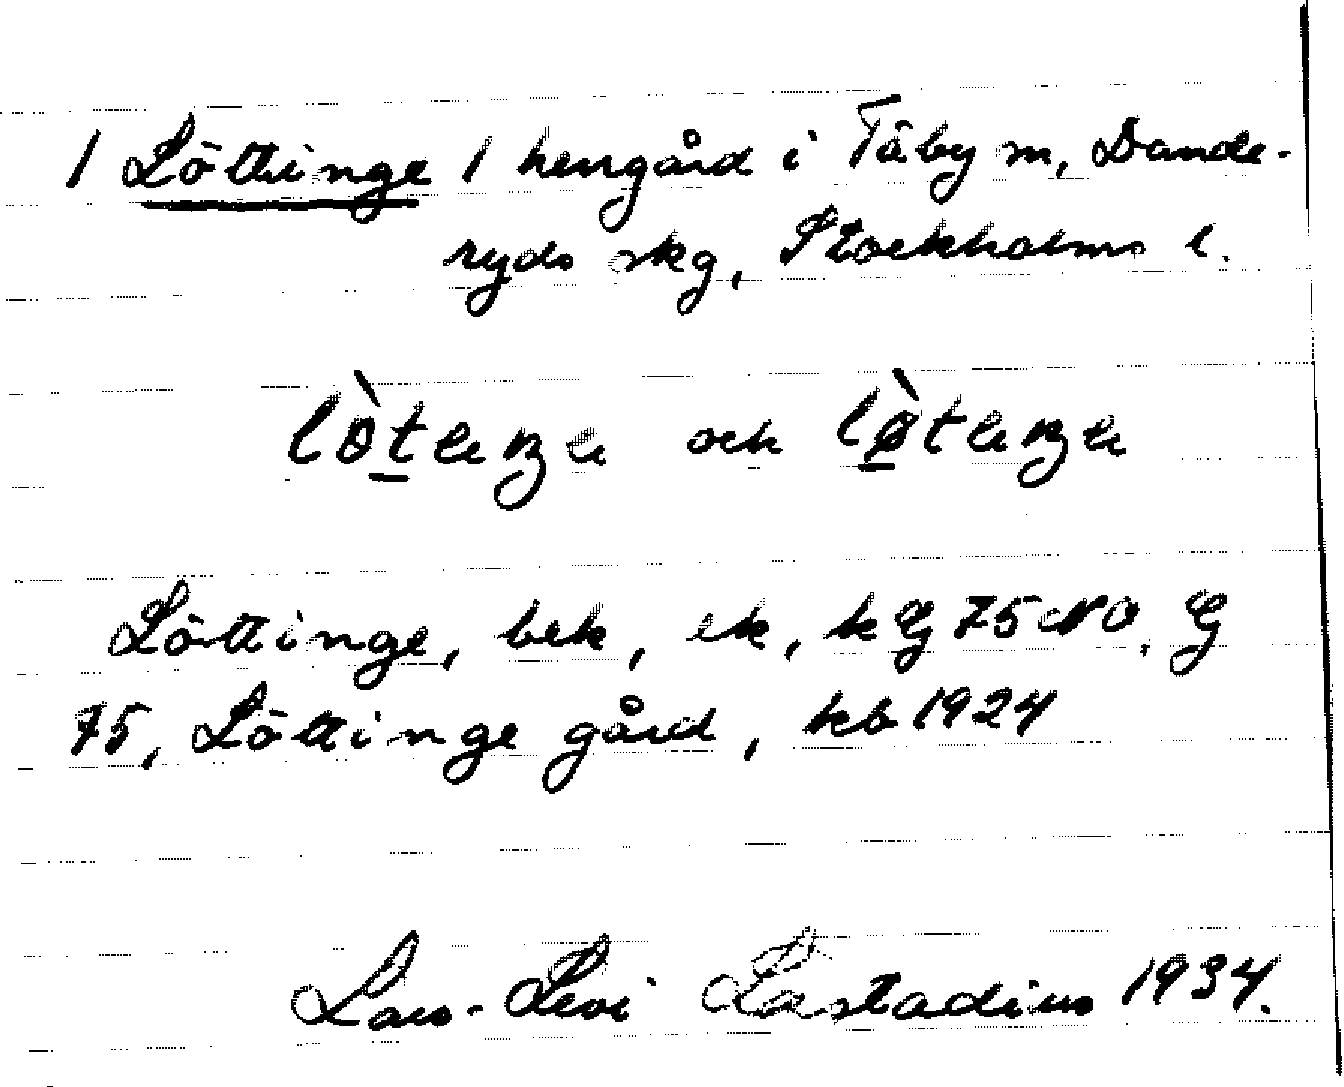 1 Löttinge 1 herrgård i Täby sn, Dande-
ryds skg, Stockholms l.
och
Löttinge, bek, ek, kG 75 NO, G
75, Löttinge gård, kb 1924
Lars-Levi Læstadius 1934.